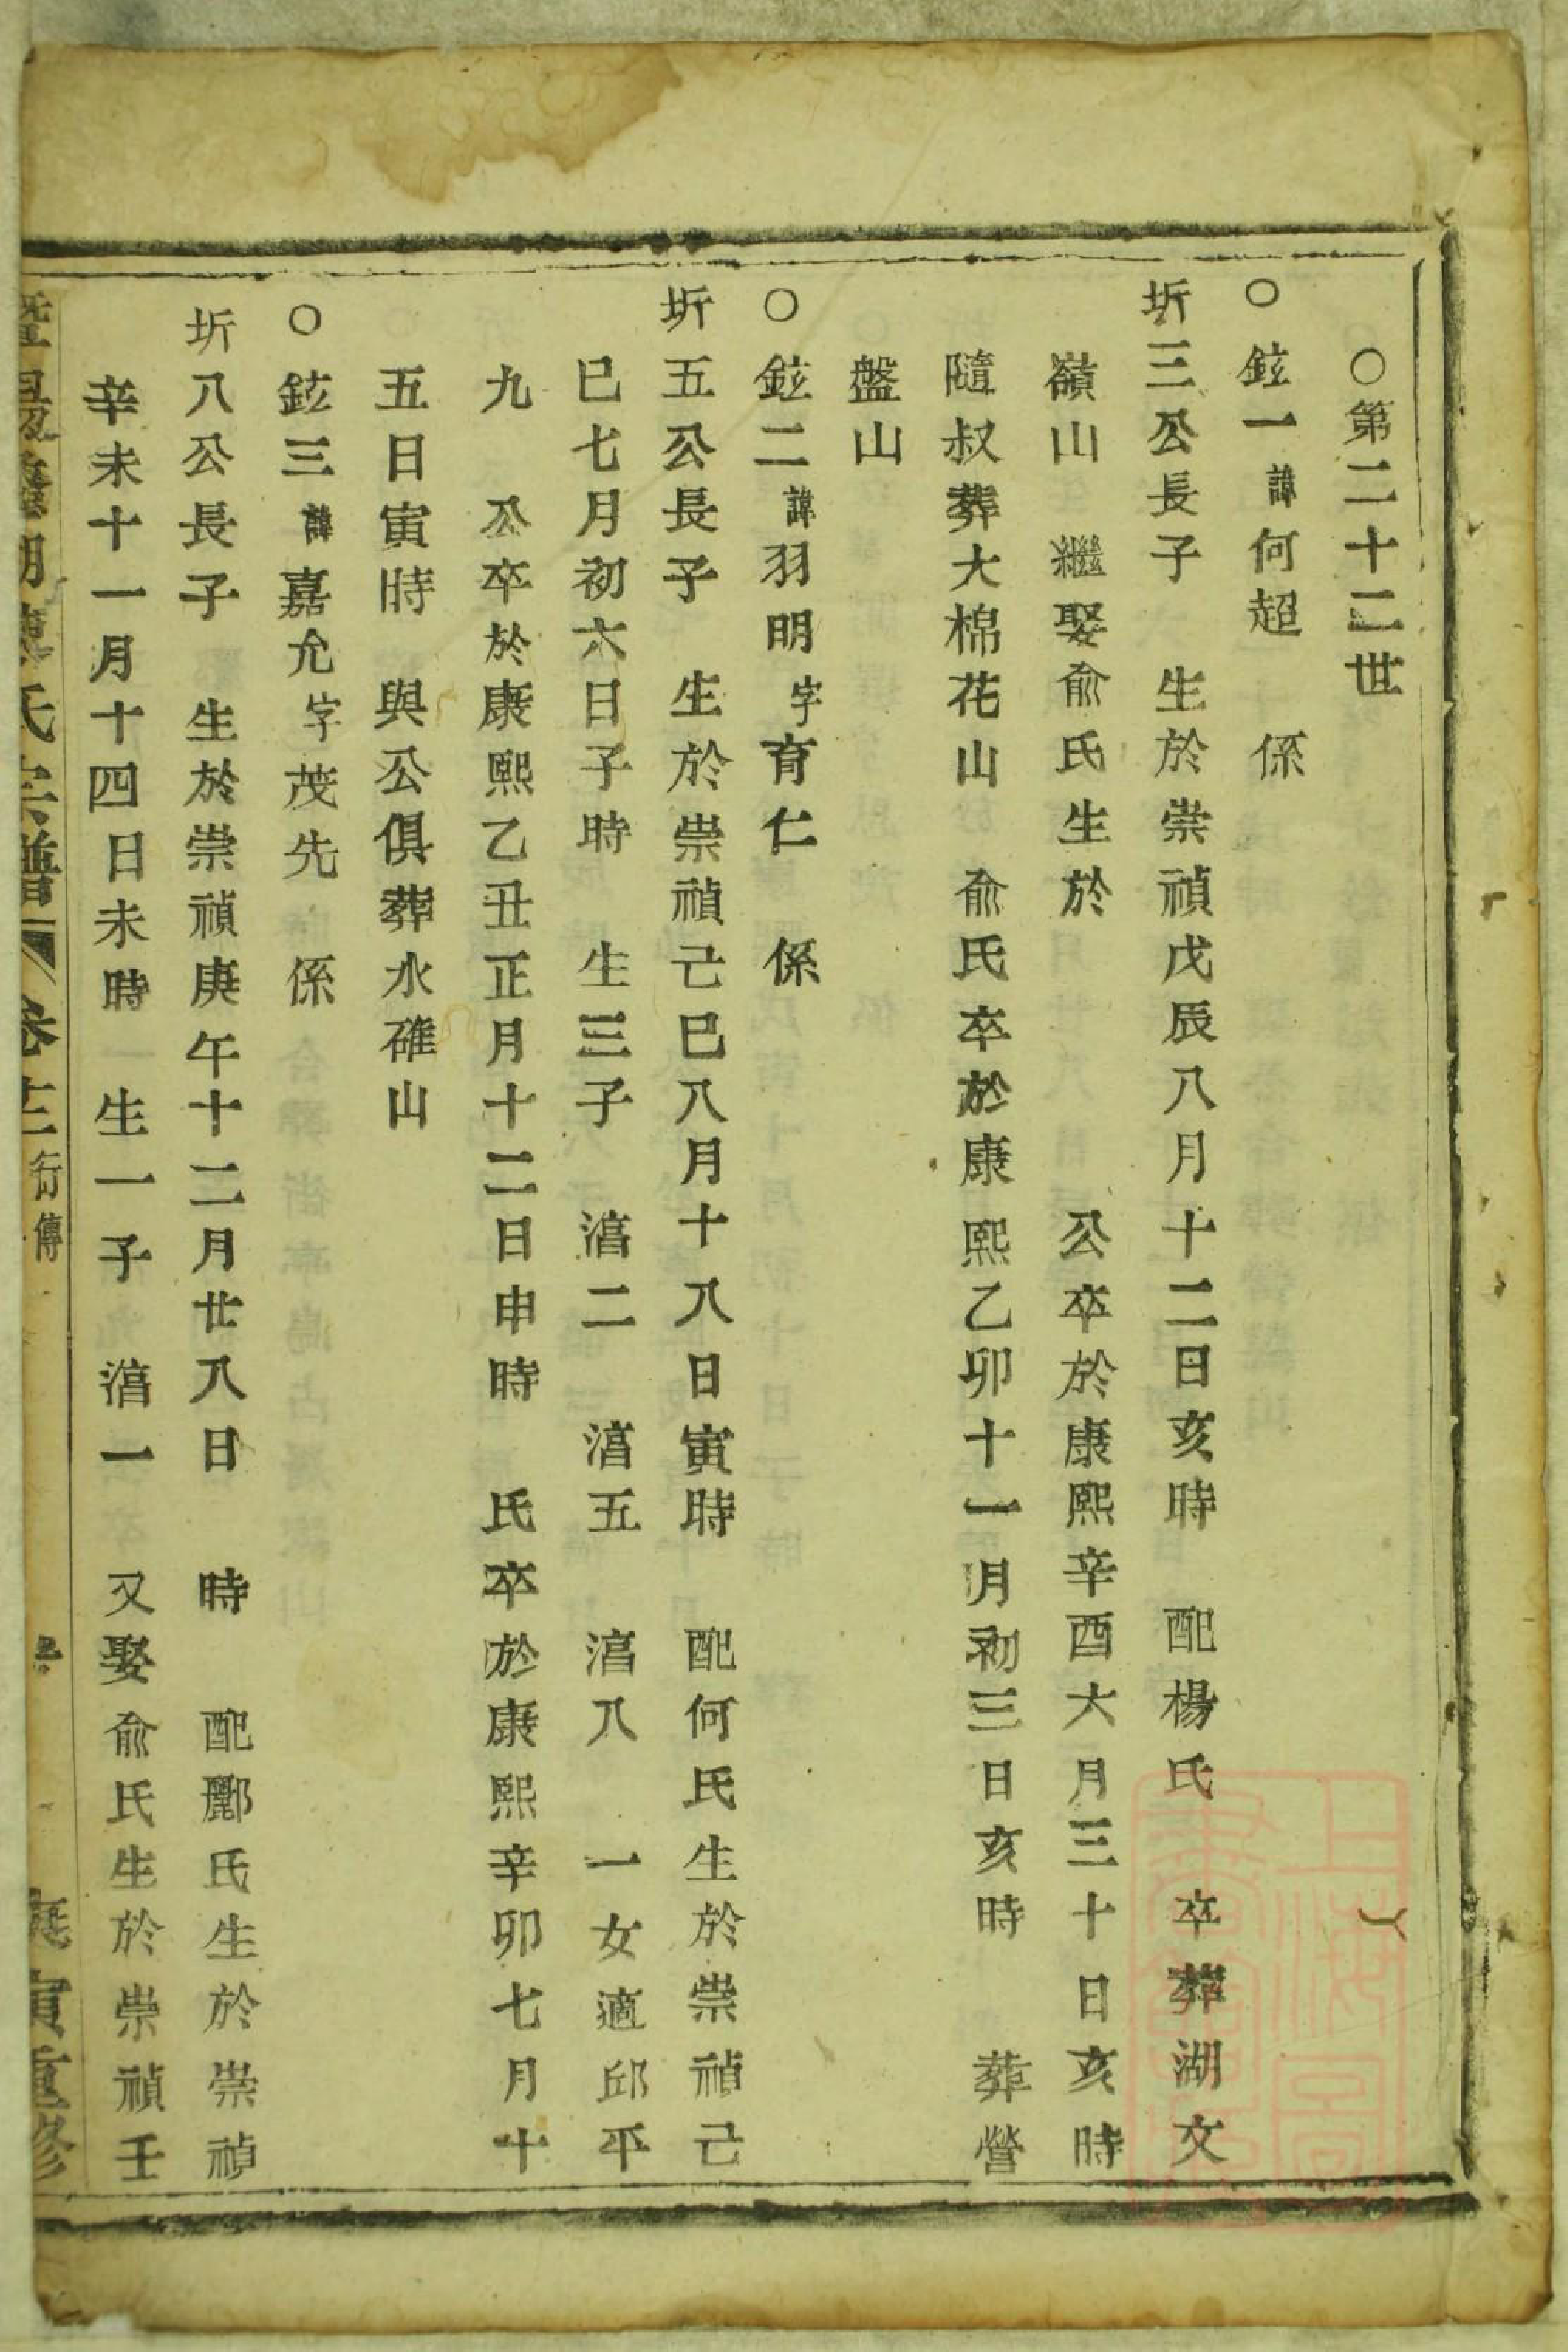 ○第二十二世
○鉉一諱何超　係
圻三公長子　生於崇禎戊辰八月十二日亥時　配楊氏　卒葬湖文
嶺山　繼娶俞氏生於　公卒於康熙辛酉六月三十日亥時
隨叔葬大棉花山　俞氏卒於康熙乙卯十一月初三日亥時　葬營
盤山
○鉉二諱羽明字育仁　係
圻五公長子　生於崇禎己巳八月十八日寅時　配何氏生於崇禎己
巳七月初六日子時　生三子　湻二　湻五　湻八　一女適邱平
九　公卒於康熙乙丑正月十二日申時　氏卒於康熙辛卯七月十
五日寅時　與公俱葬水碓山
○鉉三諱嘉允字茂先　係
圻八公長子　生於崇禎庚午十二月廿八日　時　配酈氏生於崇禎
辛未十一月十四日未時　生一子　湻一　又娶俞氏生於崇禎壬
氏宗譜　卷十二　行傳　庚寅重修